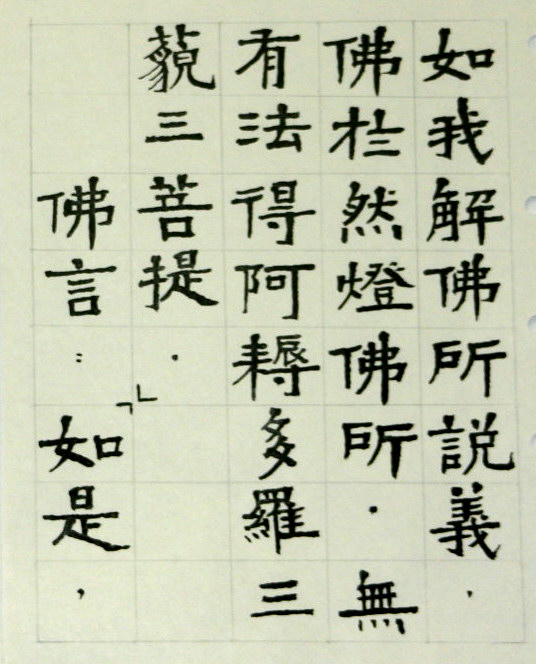 如我解佛所説義．
佛於然燈佛所．無
有法得阿耨多羅三
藐三菩提．」
佛言：「如是，